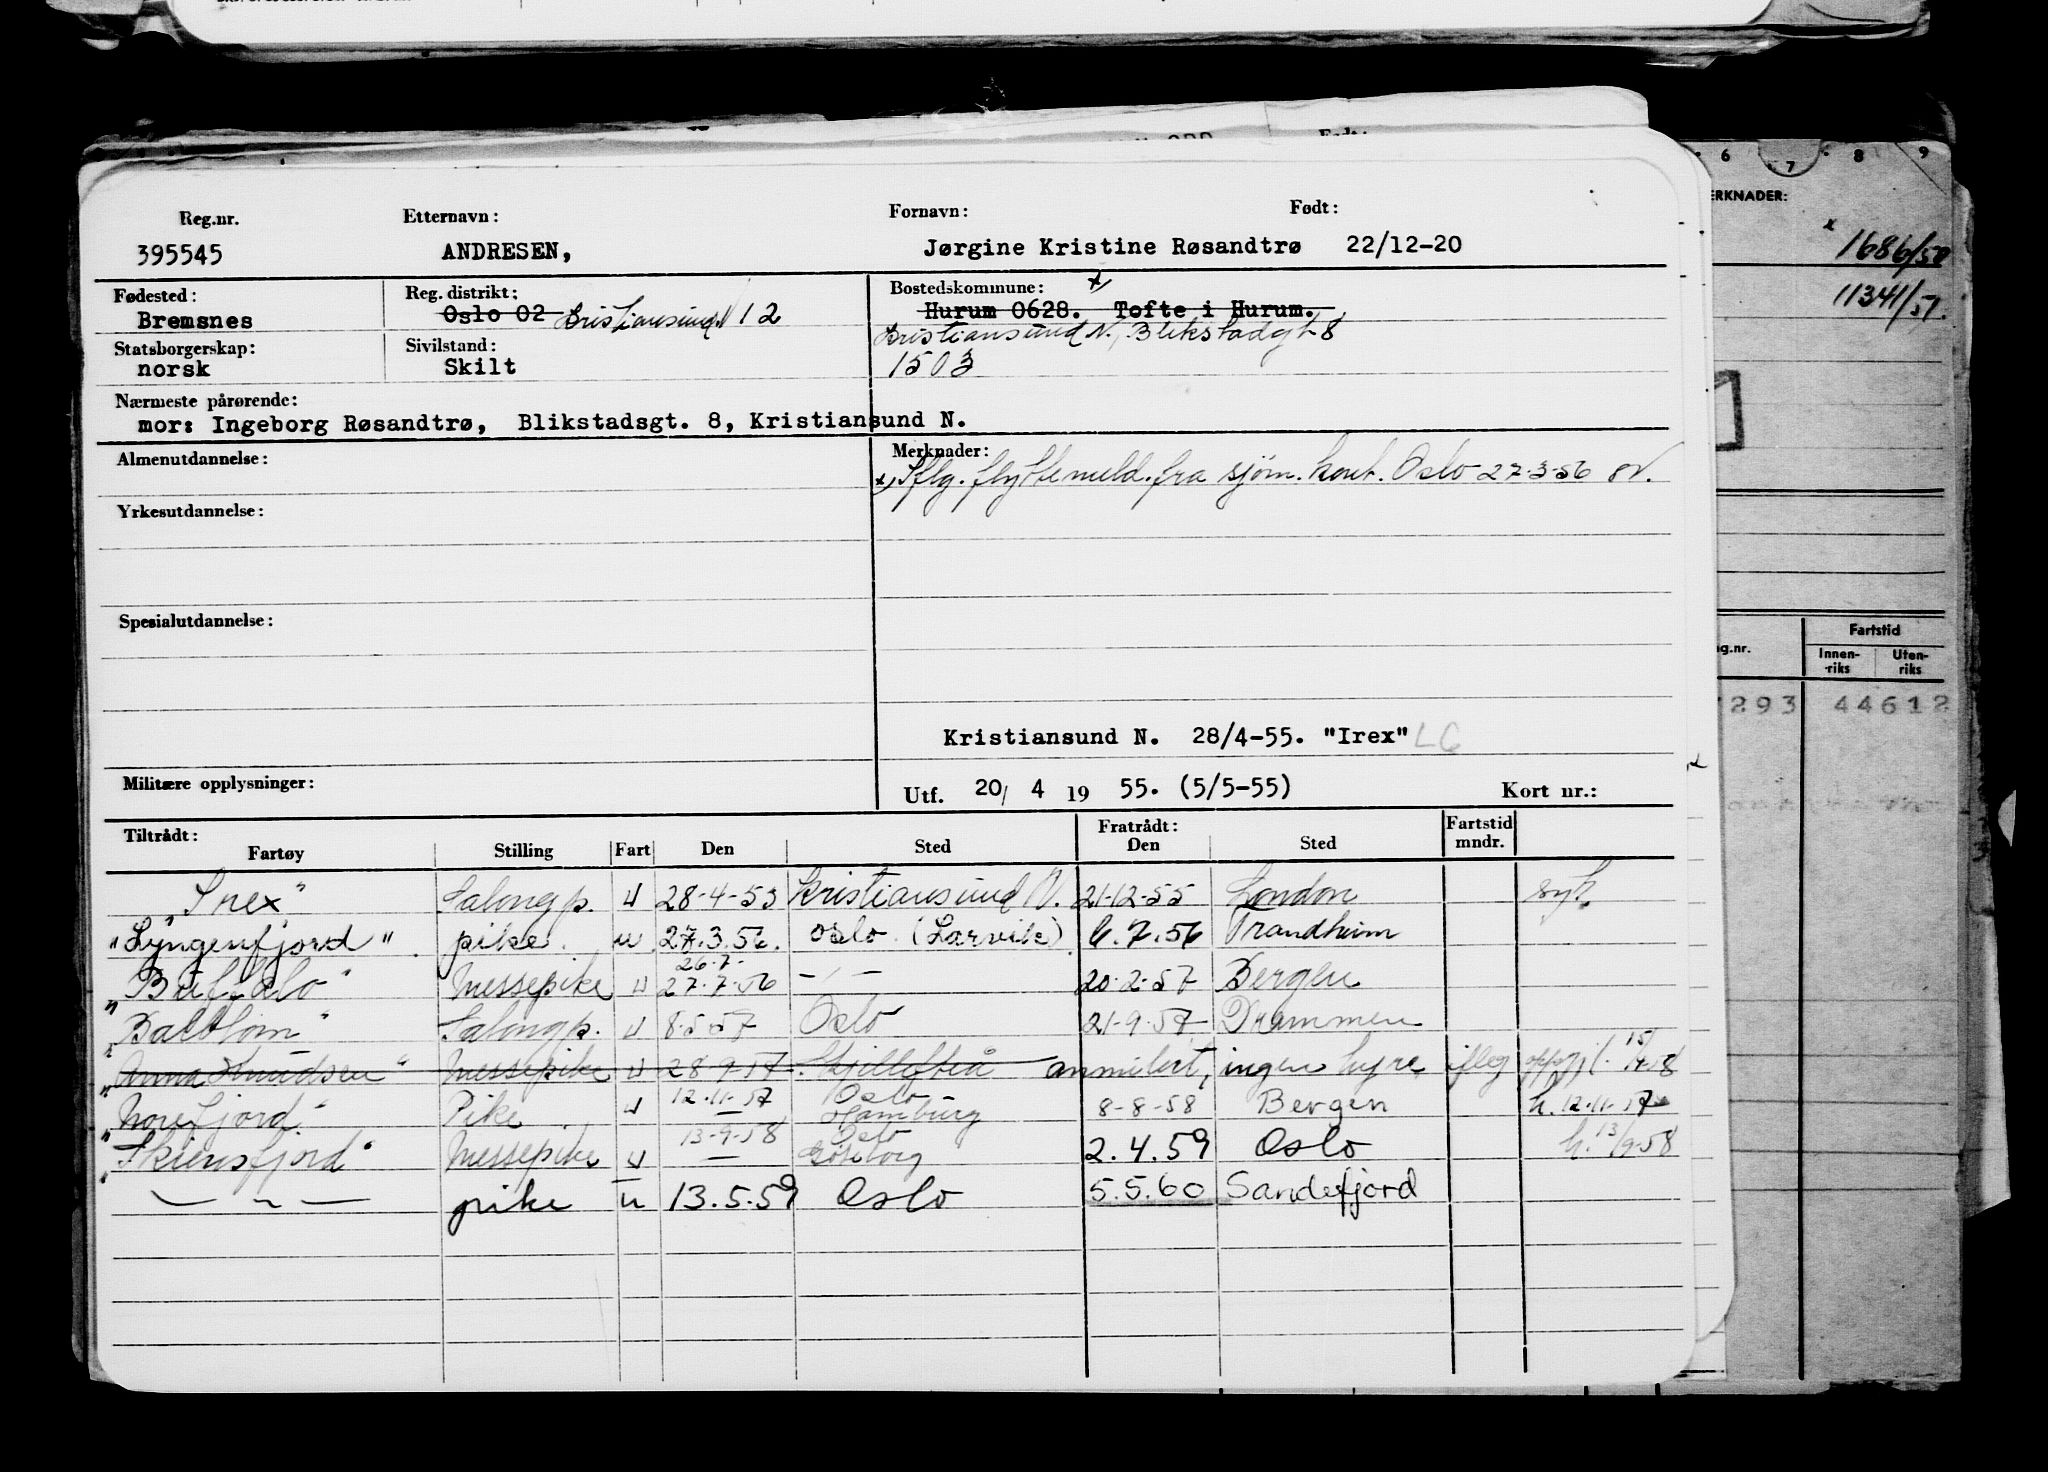 Reg.nr. Etternavn: Fornavn: Født:
395545 ANDRESEN, Jørgine Kristine Røsandtrø 22/12-20
Fødested: Reg. distrikt: Bostedskommune: x)
Bremsnes Oslo 02 Kristiansund N 12 Hurum 0628. Tofte i Hurum.
Kristiansund N., Blikstadgt 8
Statsborgerskap: Sivilstand:
norsk Skilt 1503
Nærmeste pårørende:
mor: Ingeborg Røsandtrø, Blikstadsgt. 8, Kristiansund N.
Almenutdannelse: Merknader:
x) Iflg. flyttemeld. fra sjøm. kont. Oslo 27-3-56
Yrkesutdannelse:
Spesialutdannelse:
Kristiansund N. 28/4-55. "Irex" LG
Militære opplysninger: Utf. 20/ 4 19 55. (5/5-55) Kort nr.:
Tiltrådt: Fratrådt: Fartstid
Fartøy Stilling Fart Den Sted Den Sted mndr.
"Irex" Salongp. u 28-4-53 Kristiansund N. 21-12-55 London syk
"Lyngenfjord" pike. u 27.3.56. Oslo (Larvik) 6.7.56 Trondheim
26.7-
"Buffalo" Messepike u 27.7.56 -"- 20-2-57 Bergen
"Dalblom" Salongp. u 8.5.57 Oslo 21-9-57 Drammen
"Anna Knudsen" Messepike u 28-9-57 Skjelleftiå annulert, ingen hyre ifleg oppgj. 15/4-58
12-11-57 Oslo
"Norefjord" Pike u — Hamburg 8-8-58 Bergen h. 12-11-57
13-9-58 Oslo
"Skiensfjord" Messepike u — Gøteborg 2.4.59 Oslo h. 13/9-58
— " — pike u 13.5.59 Oslo 5.5.60 Sandefjord
6 7 8 9
ERKNADER:
x 1686/58
11341/57.
Fartstid
g.nr. Innen-riks Uten-riks
293 44612